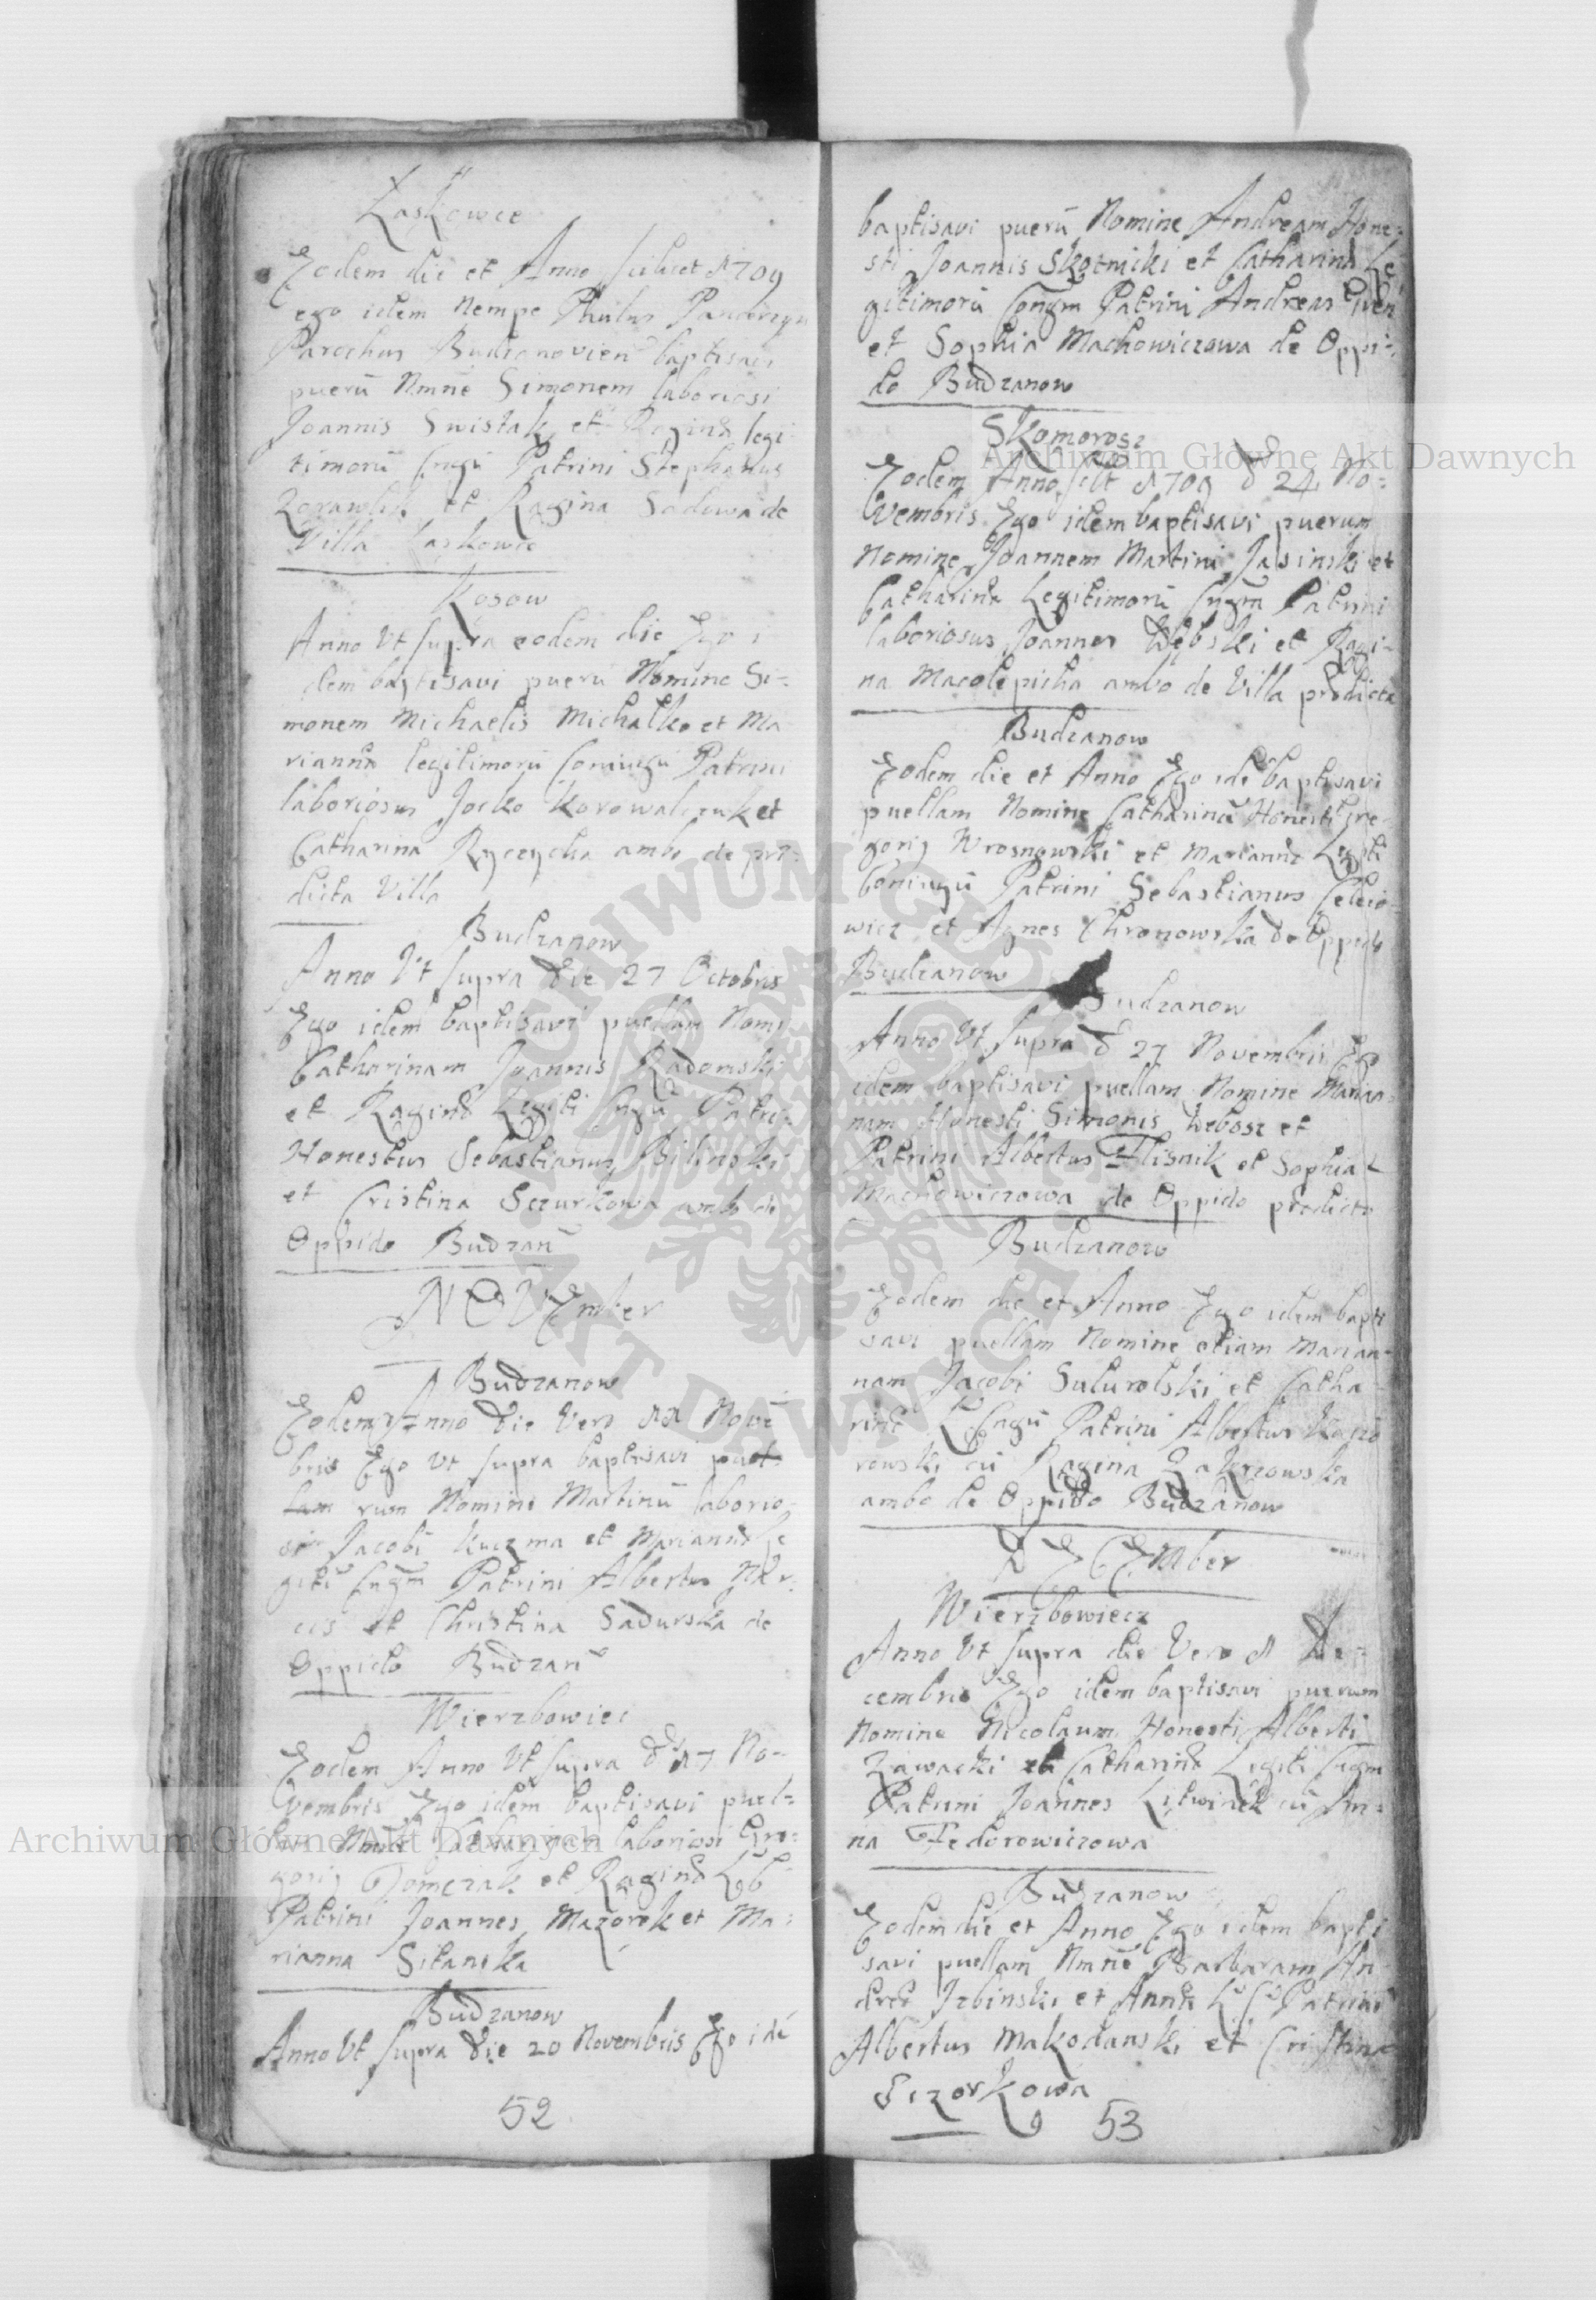 Łaskowce
Eodem die et Anno scilicet 1709
ego idem nempe Paulus
Parochus Budzanovien baptisavi
puerũ Nmñe Simonem laboriosi
Joannis Swistak et Regina legi
timorũ Cngũ Patrini Stephanus
et Regina Sadowa de
Villa Laskowce
Kosow
Anno Vt supra eodem die Ego i
dem baptisavi puerũ Nomine Si-
monem Michaelis Michalko et Ma
rianna legitimorũ Coniugũ Patrini
laboriosus Jocko Korowalczuk et
Catharina Ryczycha ambo de prae-
dicta Villa
Budzanow
Anno Vt supra die 27 Octobris
Ego idem baptisavi puellam Nomi
Catharinam Joannis Radomski
et Regina Legiti Cngũ Patri
Honestus Sebastianus Bilinski
et Cristina Sczurkowa ambo de
Oppido Budzan
NOVEmber
Budzanow
Eodem Anno die Vero 11 Novẽ
bris Ego Vt supra baptisavi puel
lam rum Nomine Martinũ laborio
si Jacobi Kuczma et Marianna Le
giti Cngm Patrini Albertus
et Christina Sadurska de
Oppido Budzan
Wierzbowiec
Eodem Anno Vt supra d 17 No-
vembris Ego idem baptisavi puel-
lam Nmñe Catharinam laboriosi Gre-
gorij Tomczak et Regina
Patrini Joannes Mazorek et Ma-
rianna Sitanska
Budzanow
Anno Vt supra die 20 Novembris Ego idẽ
52
baptisavi puerũ Nomine Andream Hone-
sti Joannis Skotnicki et Catharina Le
gitimorũ Congm Patrini Andreas
et Sophia Machowiczowa de Oppi-
do Budzanow
Skomorosz
Eodem Anno sclt 1709 d 24 No-
vembris Ego idem baptisavi puerum
Nomine Joannem Martini Jasinski et
Catharina Legitimorũ Cngm Patrini
laboriosus Joannes Dębski et Regi-
na Macolepicha ambo de Villa prædicta
Budzanow
Eodem die et Anno Ego idẽ baptisavi
puellam Nomine Catharinã Honesti Gre-
gorij Wrosnowski et Marianna Legiti
Coniugũ Patrini Sebastianus
wicz et Agnes Chronowska de Oppido
Budzanow
Budzanow
Anno Vt supra d 27 Novembris Ego
idem baptisavi puellam Nomine Marian-
nam Honesti Simonis Debosz et
Patrini Albertus Flisnik et Sophia
Machowiczowa de Oppido prædicto
Budzanow
Eodem die et Anno Ego idem bapti
savi puellam Nomine etiam Marian-
nam Jacobi et Catha-
rina L Cngũ Patrini Albertus
rowski cũ Regina Zakrzowska
ambo de Oppido Budzanow
DECEMber
Wierzbowiecz
Anno Vt supra die Vero 1 De-
cembris Ego idem baptisavi puerum
Nomine Nicolaum Honesti Alberti
Zawacki et Catharina Legiti Cngm
Patrini Joannes Litwinek cũ An-
na Fedorowiczowa
Budzanow
Eodem die et Anno Ego idem bapti
savi puellam Nmñe Barbaram An
dreæ Izbinski et Anna L C Patrini
Albertus Makodanski et Cristina
Sczorkowa
53
Archiwum Główne Akt Dawnych
Archiwum Główne Akt Dawnych
ARCHIWUM GŁÓWNE AKT DAWNYCH